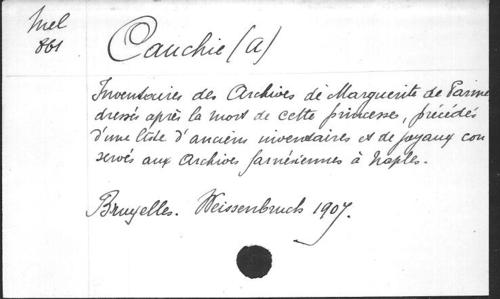 Mel
861
Cauchie (A)
Inventaires des Archives de Marguerite de Parme
dressés après la mort de cette princesse, précédés
d'une liste d'anciens inventaires et de joyaux con
servés aux Archives farnésiennes à Naples.
Bruxelles. Weissenbruch 1907.